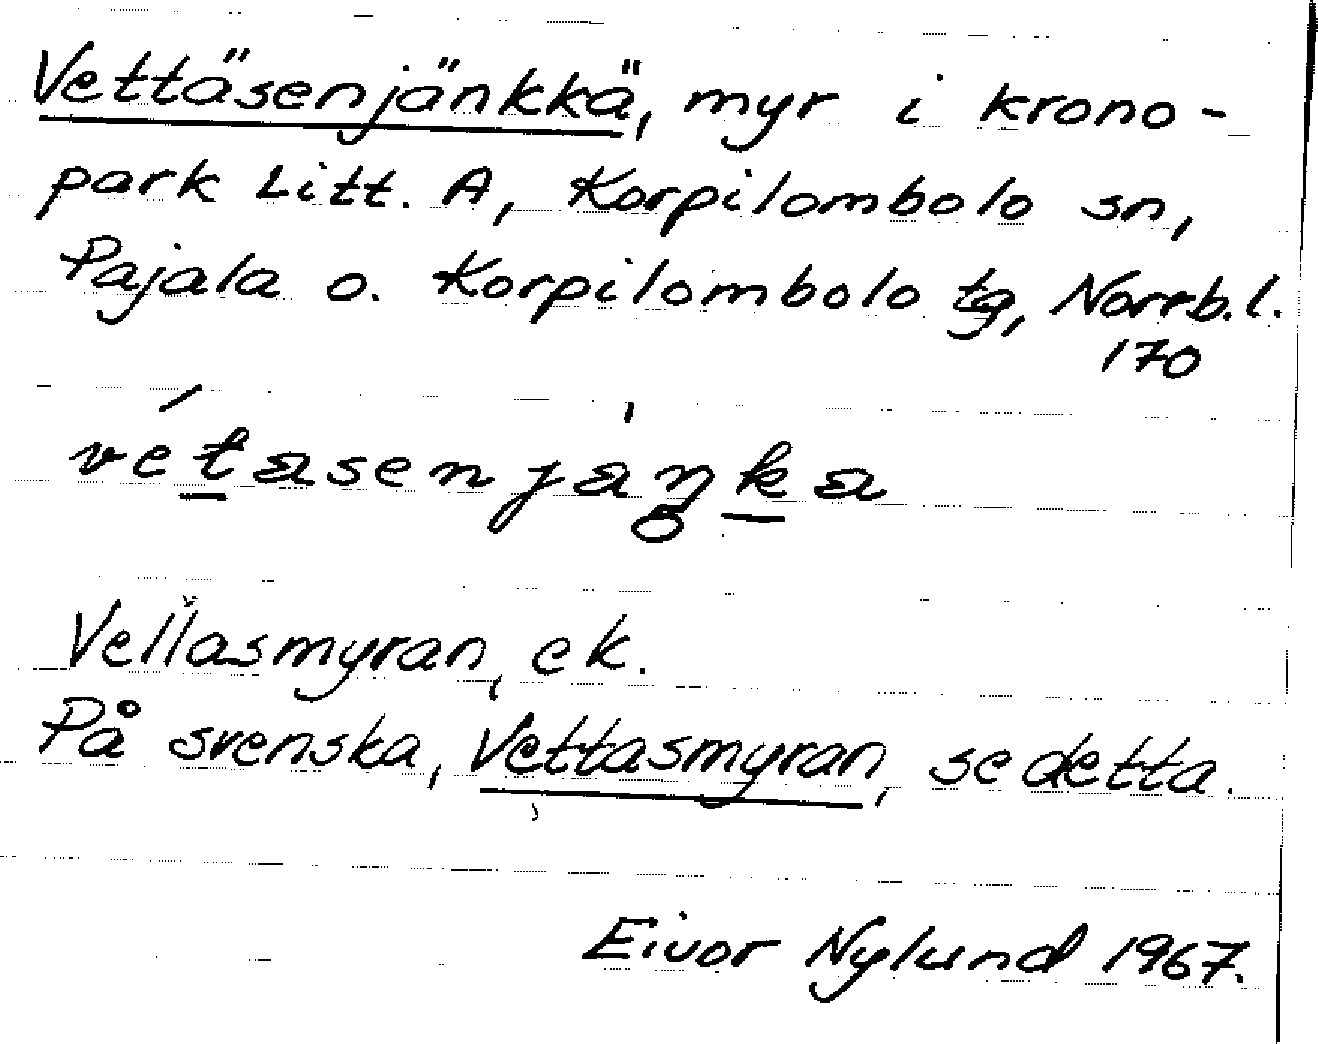 Vettäsenjänkkä, myr i krono-
park Litt. A, Korpilombolo sn,
Pajala o. Korpilombolo tg, Norrb.l.
170
vetasenjaŋka
Vellasmyran, ek.
På svenska, Vettasmyran, se detta.
Eivor Nylund 1967.